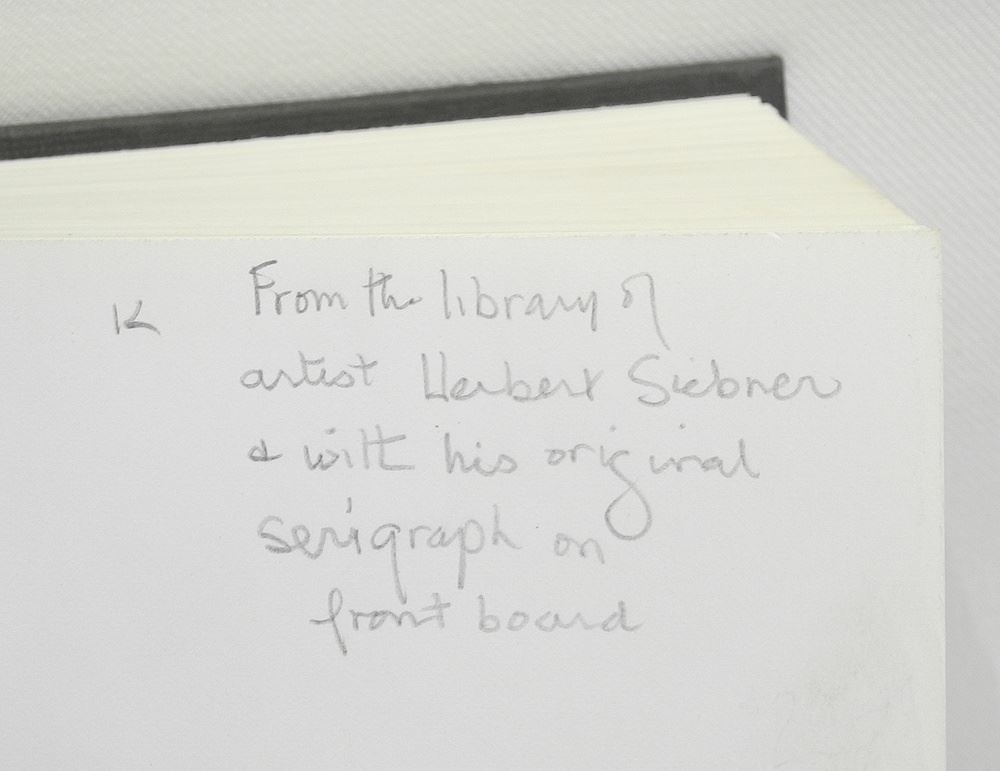 K
From the library of
artist Herbert Siebner
& with his original
serigraph on
front board